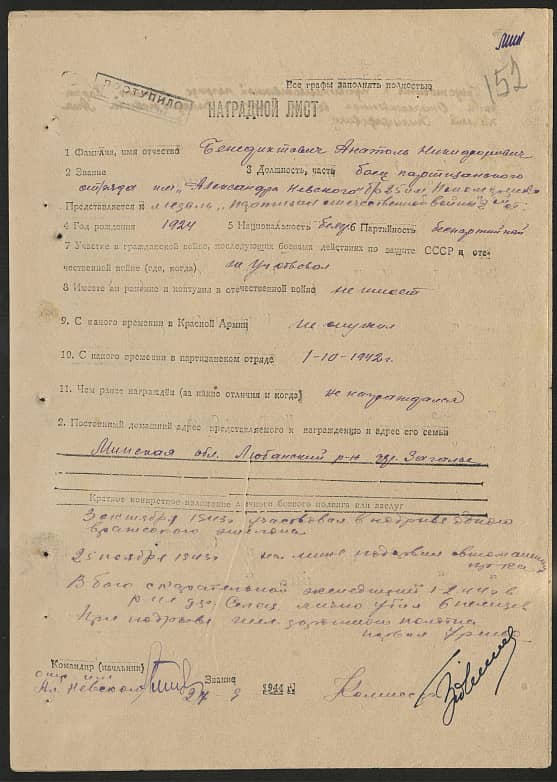 152
ПОСТУПИЛО
Все графы заполнять полностью
НАГРАДНОЙ ЛИСТ
1 Фамилия, имя отчество Бенедиктович Анатоль Никифорович
2 Звание 3 Должность, часть боец партизанского
отряда им „Александра Невского" бр 25 им Пономаренко
Представляется к медаль „партизан отечественной войны"
4 Год рождения 1924 5 Национальность белор 6 Партийность беспартийный
7 Участие в гражданской войне, последующих боевых действиях по защите СССР и оте-
чественной войне (где, когда) не участвовал
8 Имеете ли ранение и контузии в отечественной войне не имеет
9. С какого времени в Красной Армии не служил
10. С какого времени в партизанском отряде 1-10-1942г.
11. Чем ранее награжден (за какие отличия и когда) не награждался
2. Постоянный домашний адрес представляемого к награждению и адрес его семьи
Минская обл. Любанский р-н дер. Загалье
Краткое конкретное изложение личного боевого подвига или заслуг
3 октября 1943г участвовал в подрыве одного
вражеского эшелона
25 ноября 1943г на мине подорвал автомашину
В бою с карательной экспедицией 1944г в
р-не дер лично убил 6 немцев
При подрыве жел. дорожного полотна
Командир (начальник) Звание 1944 г.
отр им
Ал. Невского 27 9 Комиссар